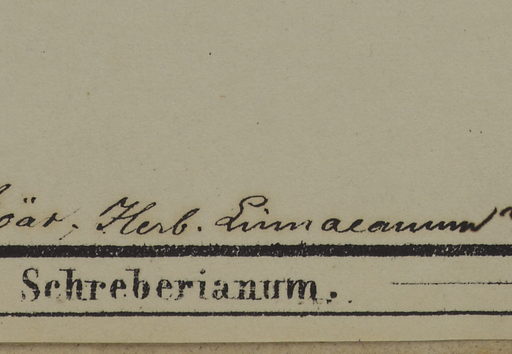 Herb. Linnaeanum
Schreberianum.